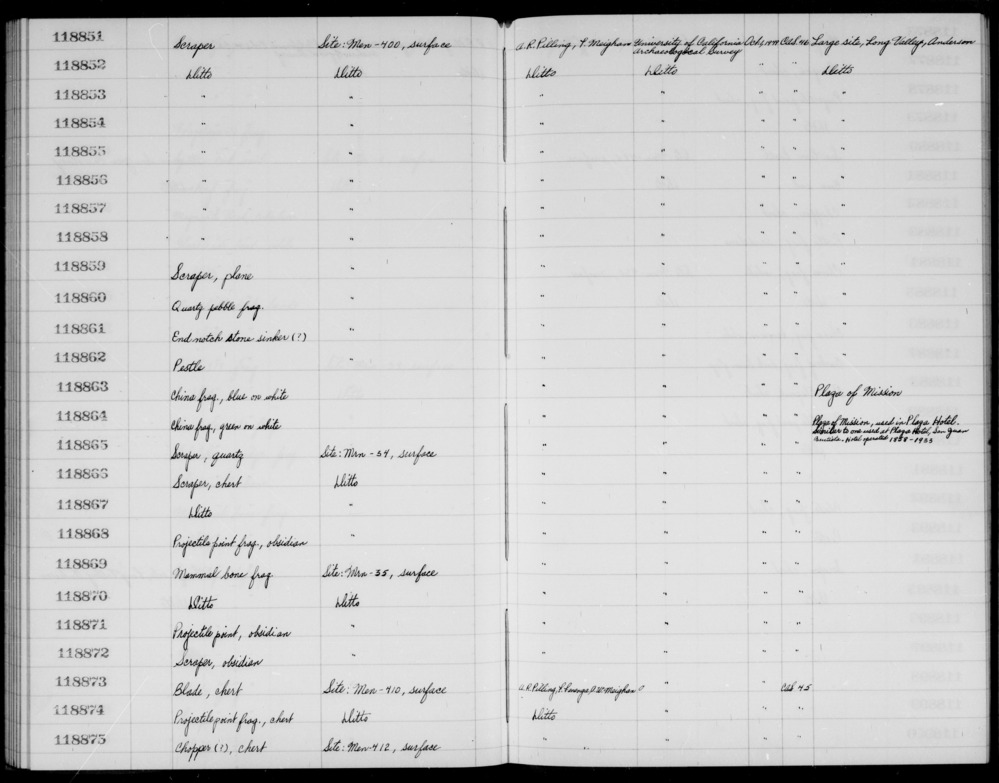 118851 Scraper Site: Men-400, surface A.R. Pilling, Meighan University of California Archaeological Survey Oct, Large site, Long Valley, Anderson
118852 Ditto Ditto Ditto Ditto " " Ditto
118853 " " " " " " "
118854 " " " " " " "
118855 " " " " " " "
118856 " " " " " " "
118857 " " " " " " "
118858 " " " " " " "
118859 Scraper, plane " " " " " "
118860 Quartz pebble frag. " " " " " "
118861 End notch stone sinker (?) " " " " " "
118862 Pestle " " " " " "
118863 China frag., blue on white " " " " Plaza of Mission
118864 China frag., green on white " " " " Plaza of Mission, used in Plaza Hotel.
Similar to one used at Plaza Hotel, San Juan
Bautista. Hotel operated 1858-1933
118865 Scraper, quartz Site: Mrn-34, surface " " " "
118866 Scraper, chert Ditto " " " "
118867 Ditto " " " " "
118868 Projectile point frag., obsidian " " " " "
118869 Mammal bone frag Site: Mrn-35, surface " " " "
118870 Ditto Ditto " " " "
118871 Projectile point, obsidian " " " " "
118872 Scraper, obsidian " " " " "
118873 Blade, chert Site: Men-410, surface A.R. Pilling, Meighan " " 45
118874 Projectile point frag., chert Ditto Ditto " " "
118875 Chopper (?), chert Site: Men-412, surface " " " "